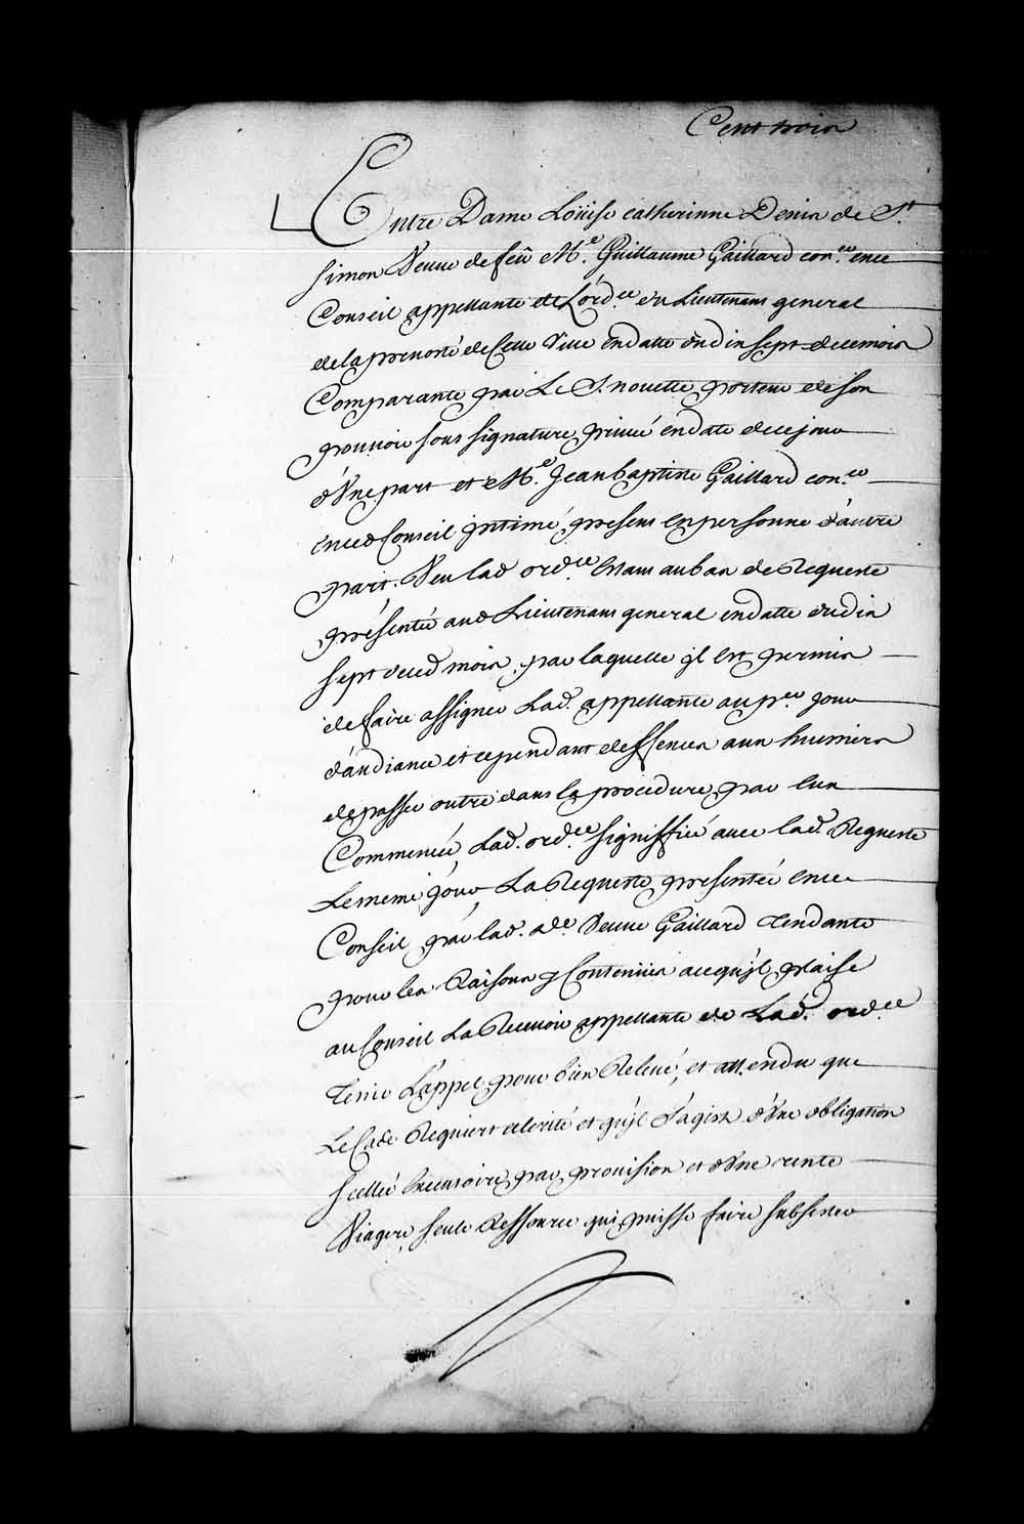 Cent trois
Entre Dame Loüise catherinne Denis de St
simon Veuve de feû Me. Guillaume Gaillard coner ence
Conseil appellante de L'ordce du Lieutenant general
de la prevosté de Cette Ville en datte du dix sept de ce mois
Comparante par Le Sr. nouette porteur de son
pouvoir sous signature privée en date de ce jour
d'Vne part et Me. Jean baptiste Gaillard coner
en ced Conseil jntimé present en personne d'autre
part. Veu lad ordce Estant au bas de Requeste
présentée aud Lieutenant general en datte dud dix
sept de ced mois, par laquelle jl Est permis
de faire assigner Lad. appellante au per jour
d'audiance et cependant deffences aux huissiers
de passer outre dans la procedure par lux
Commencée, Lad. ordce signiffiée avec lad. Requeste
Le meme jour, La Requeste presentée En ce
Conseil par lad. de. Veuve Gaillard tendante
pour les Raisons y Contenües a ce qu'jl plaise
au Conseil La Recevoir appellante de Lad. ordce
tenir L'appel pour bien Relevé, et attendu que
Le Cas Requiert celerité et qu'jl s'agist d'Vne obligation
scellée Executoire par provision et d'Vne rente
Viagere seule Ressource qui puisse faire subsister